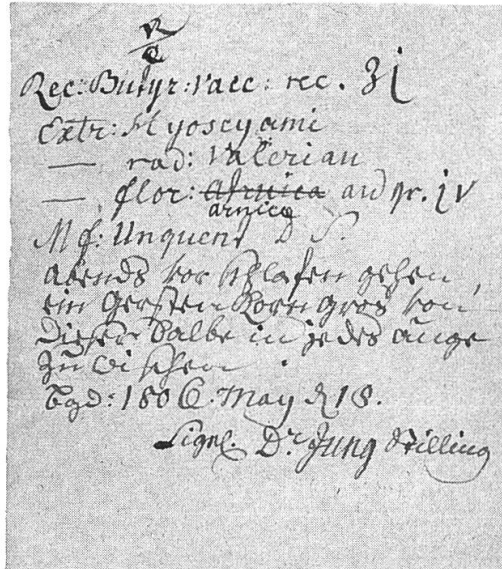 Rec: Butyr: vacc: rec. ʒj
Extr: Hyoscyami
— rad: Valerian
— flor: Arnica aa gr. jv
arnicæ
M f: Unguent D S.
abends vor schlafen gehen,
ein Gersten Korn gros von
dieser Salbe in jedes auge
zu wischen.
1806. May d 18.
Signl. Dr Jung Stilling